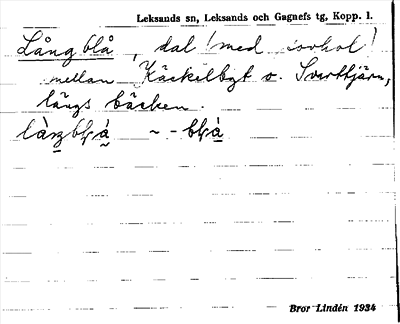 Leksands sn, Leksands och Gagnefs tg, Kopp. l.
Långblå, dal (med isohol)
mellan Käckelbyt o. Svarttjärn,
längs bäcken.
Bror Lindén 1934